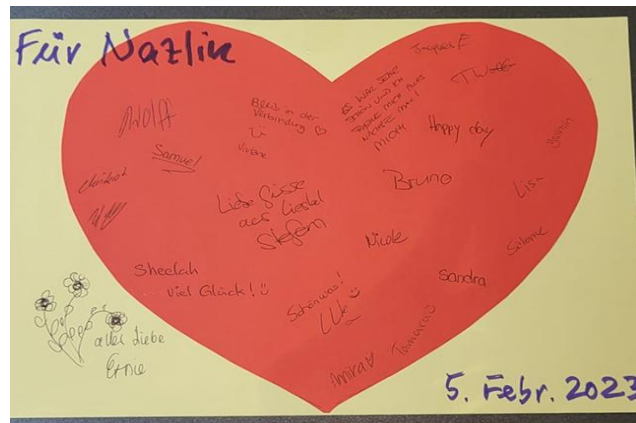 Für Nazlin
Jacques F
A Wolff
Bleib in der
Verbindung
Viviane
ES WAR SEHR
SCHÖN UND ICH
FREUE MICH AUFS
NÄCHSTE MAL!
Happy day
Samuel
Bruno
Lisa
Liebe Grüsse
aus Liestal
Stefan
Nicole
Salome
Sheelah
Viel Glück!
Sandra
Schön was!
Tamara
Amira
alles Liebe
5. Febr. 2023